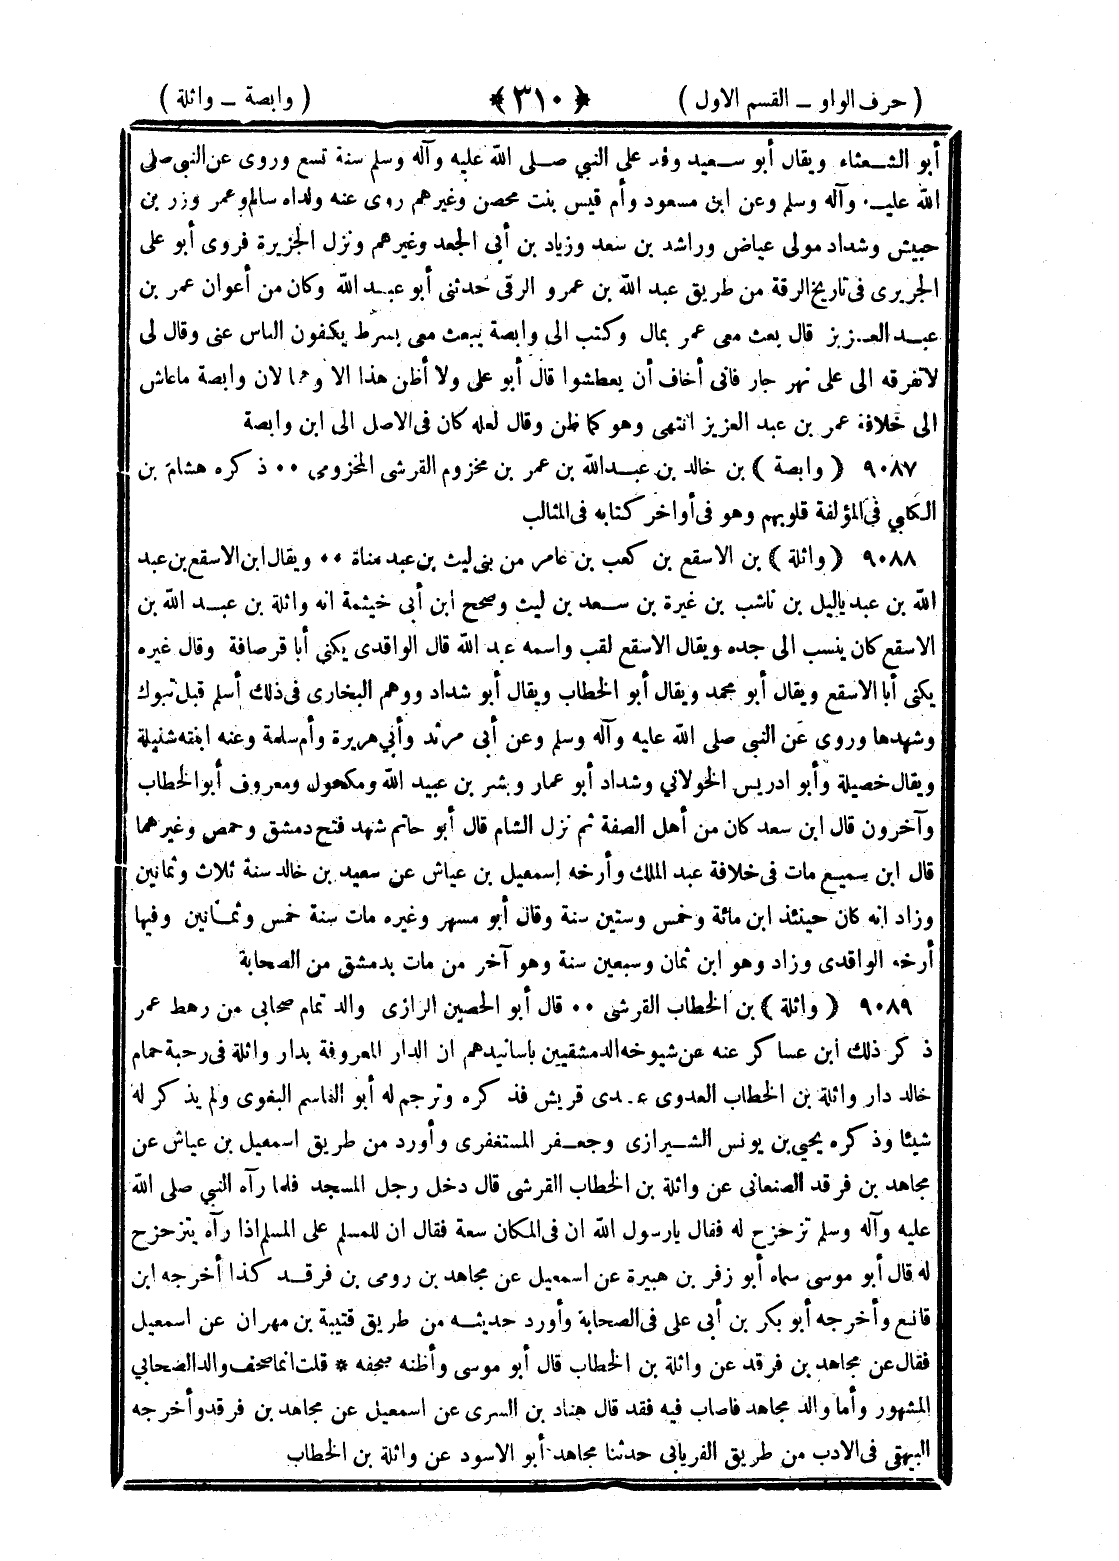 ( حرف الواو ــ القسم الاول ) ﴿ ٣١٠ ﴾ ( وابصة ــ واثلة )
أبو الشعثاء ويقال أبو سعيد وفد على النبي صلى الله عليه وآله وسلم سنة تسع وروى عن النبي صلى
الله عليه وآله وسلم وعن ابن مسعود وأم قيس بنت محصن وغيرهم روى عنه ولداه سالم وعمر وزر بن
حبيش وشداد مولى عياض وراشد بن سعد وزياد بن أبي الجعد وغيرهم ونزل الجزيرة فروى أبو على
الجريرى فى تاريخ الرقة من طريق عبد الله بن عمرو الرقى حدثنى أبو عبد الله وكان من أعوان عمر بن
عبد العزيز قال بعث معى عمر بمال وكتب الى وابصة يبعث معى بشرط يكفون الناس عنى وقال لى
لاتفرقه الى على نهر جار فانى أخاف أن يعطشوا قال أبو على ولا أظن هذا الا وهما لان وابصة ماعاش
الى خلافة عمر بن عبد العزيز انتهى وهو كما ظن وقال لعله كان فى الاصل الى ابن وابصة
٩٠٨٧ ( وابصة ) بن خالد بن عبدالله بن عمر بن مخزوم القرشى المخزومى ٠٠ ذكره هشام بن
الكلبي فى المؤلفة قلوبهم وهو فى أواخر كتابه فى المثالب
٩٠٨٨ ( واثلة ) بن الاسقع بن كعب بن عامر من بنى ليث بن عبد مناة ٠٠ ويقال ابن الاسقع بن عبد
الله بن عبد ياليل بن ناشب بن غيرة بن سعد بن ليث وصحح ابن أبى خيثمة انه واثلة بن عبد الله بن
الاسقع كان ينسب الى جده ويقال الاسقع لقب واسمه عبد الله قال الواقدى يكنى أبا قرصافة وقال غيره
يكنى أبا الاسقع ويقال أبو محمد ويقال أبو الخطاب ويقال أبو شداد ووهم البخارى فى ذلك أسلم قبل تبوك
وشهدها وروى عن النبى صلى الله عليه وآله وسلم وعن أبى مرثد وأبي هريرة وأم سلمة وعنه ابنته شنيلة
ويقال خصيلة وأبو ادريس الخولاني وشداد أبو عمار وبشر بن عبيد الله ومكحول ومعروف أبو الخطاب
وآخرون قال ابن سعد كان من أهل الصفة ثم نزل الشام قال أبو حاتم شهد فتح دمشق وحمص وغيرهما
قال ابن سميع مات فى خلافة عبد الملك وأرخه إسمعيل بن عياش عن سعيد بن خالد سنة ثلاث وثمانين
وزاد انه كان حينئذ ابن مائة وخمس وستين سنة وقال أبو مسهر وغيره مات سنة خمس وثمانين وفيها
أرخه الواقدى وزاد وهو ابن ثمان وسبعين سنة وهو آخر من مات بدمشق من الصحابة
٩٠٨٩ ( واثلة ) بن الخطاب القرشى ٠٠ قال أبو الحصين الرازى والد تمام صحابى من رهط عمر
ذكر ذلك ابن عساكر عنه عن شيوخه الدمشقيين باسانيدهم ان الدار المعروفة بدار واثلة فى رحبة حمام
خالد دار واثلة بن الخطاب العدوى عدى قريش فذكره وترجم له أبو القاسم البغوى ولم يذكر له
شيئا وذكره يحيى بن يونس الشيرازى وجعفر المستغفرى وأورد من طريق اسمعيل بن عياش عن
مجاهد بن فرقد الصنعانى عن واثلة بن الخطاب القرشى قال دخل رجل المسجد فلما رآه النبي صلى الله
عليه وآله وسلم تزحزح له فقال يارسول الله ان فى المكان سعة فقال ان للمسلم على المسلم اذا رآه يتزحزح
له قال أبو موسى سماه أبو زفر بن هبيرة عن اسمعيل عن مجاهد بن رومى بن فرقد كذا أخرجه ابن
قانع وأخرجه أبو بكر بن أبى على فى الصحابة وأورد حديثه من طريق قتيبة بن مهران عن اسمعيل
فقال عن مجاهد بن فرقد عن واثلة بن الخطاب قال أبو موسى وأظنه صحفه * قلت انما صحف والد الصحابي
المشهور وأما والد مجاهد فاصاب فيه فقد قال هناد بن السرى عن اسمعيل عن مجاهد بن فرقد وأخرجه
البيهقى فى الادب من طريق الفريابى حدثنا مجاهد أبو الاسود عن واثلة بن الخطاب